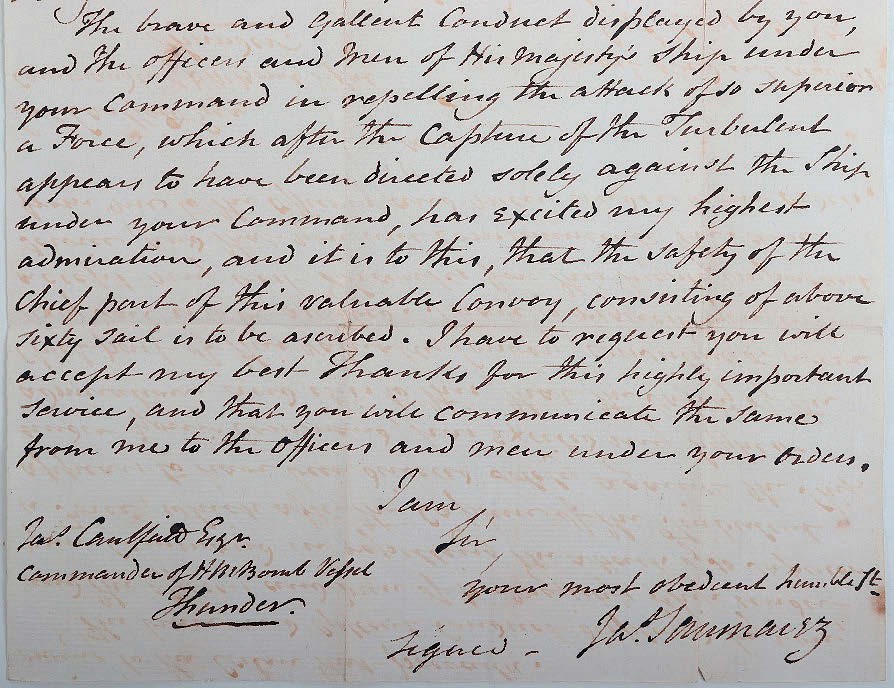 The brave and Gallent Conduct displayed by you,
and the officers and Men of His Majesty's Ship under
your Command in repelling the attack of so superior
a Force, which after the Capture of the Turbulent
appears to have been directed solely against the Ship
under your Command, has excited my highest
admiration, and it is to this, that the safety of the
Chief part of this valuable Convoy, consisting of above
sixty sail is to be ascribed. I have to request you will
accept my best Thanks for this highly important
Service, and that you will communicate the same
from me to the officers and men under your Orders.
I am
Sir
Jas. Caulfield Esqr.
Commander of HM Bomb Vessel
Thunder.
your most obedient humble St.
Signed - Jas. Saumarez